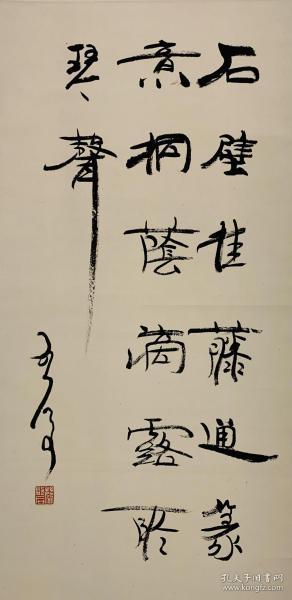 石壁挂藤通篆
意桐蔭滴露聆
琴聲
孔夫子旧书网